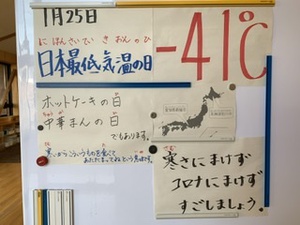 1月25日
にほんさいていきおんのひ
日本最低気温の日
-41℃
ホットケーキの日
ちゅうか
中華まんの日
でもあります。
さむ
寒さにまけず
コロナにまけず
すごしましょう